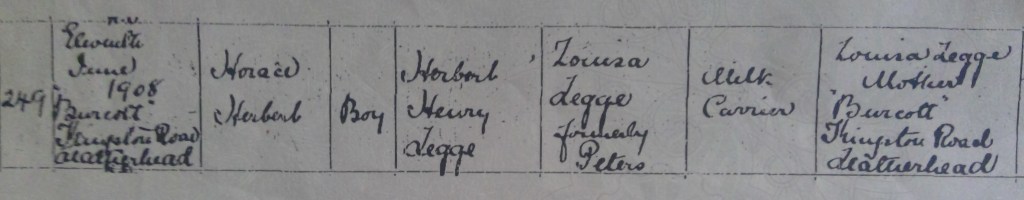 249
Eleventh
June
1908
"Burcott"
Kingston Road
Leatherhead
Horace
Herbert
Boy
Herbert
Henry
Legge
Louisa
Legge
formerly
Peters
Milk
Carrier
Louisa Legge
Mother
"Burcott"
Kingston Road
Leatherhead